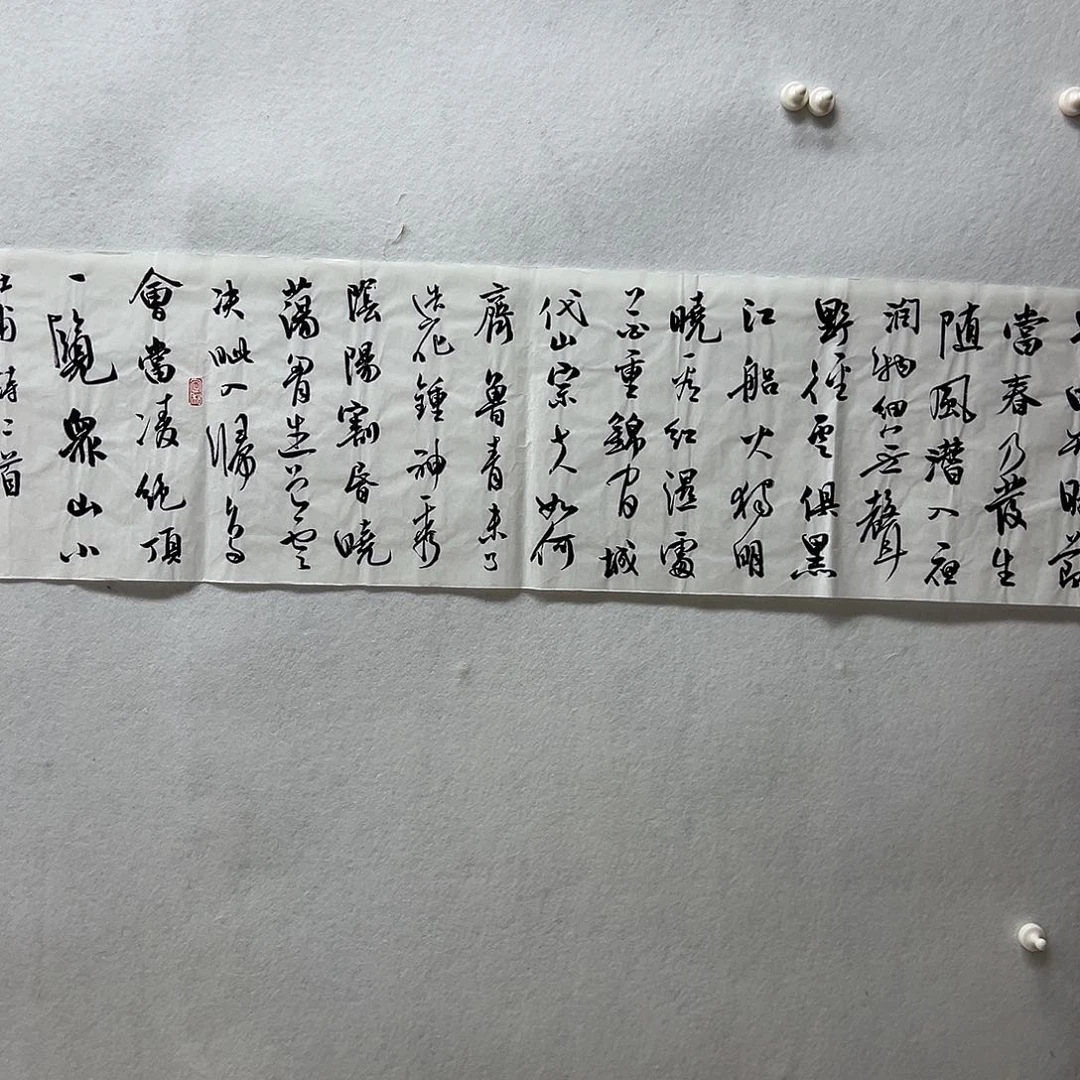 時節
當春乃發生
随風潜入夜
润物细无聲
野徑雲俱黑
江船火獨明
曉看红濕處
花重錦官城
岱宗夫如何
齊魯青未了
造化鍾神秀
陰陽割昏曉
蕩胷生曽雲
决眦入歸鳥
會當凌绝頂
一覽衆山小
杜甫詩二首